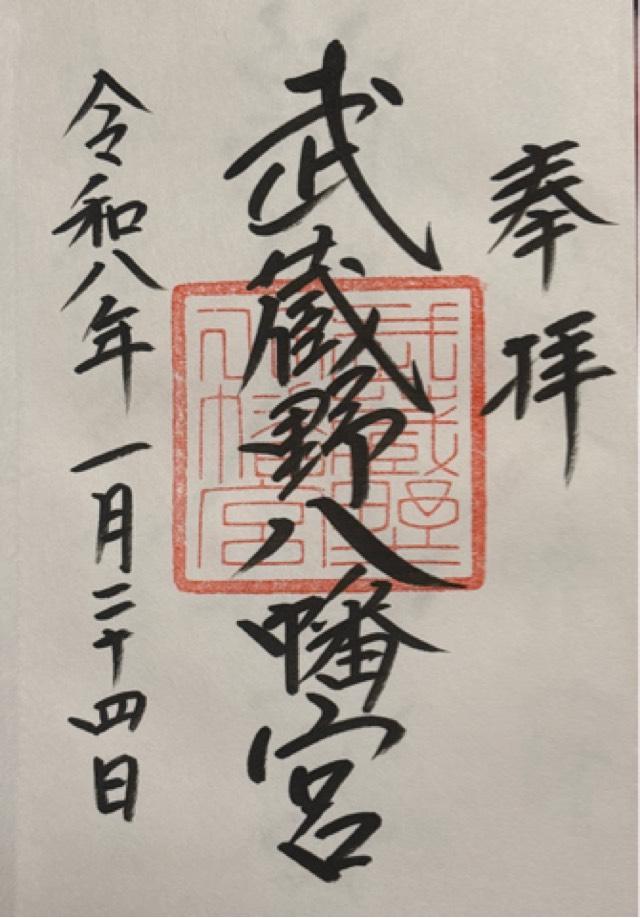 奉拝
武蔵野八幡宮
武蔵野八幡宮
令和八年一月二十四日